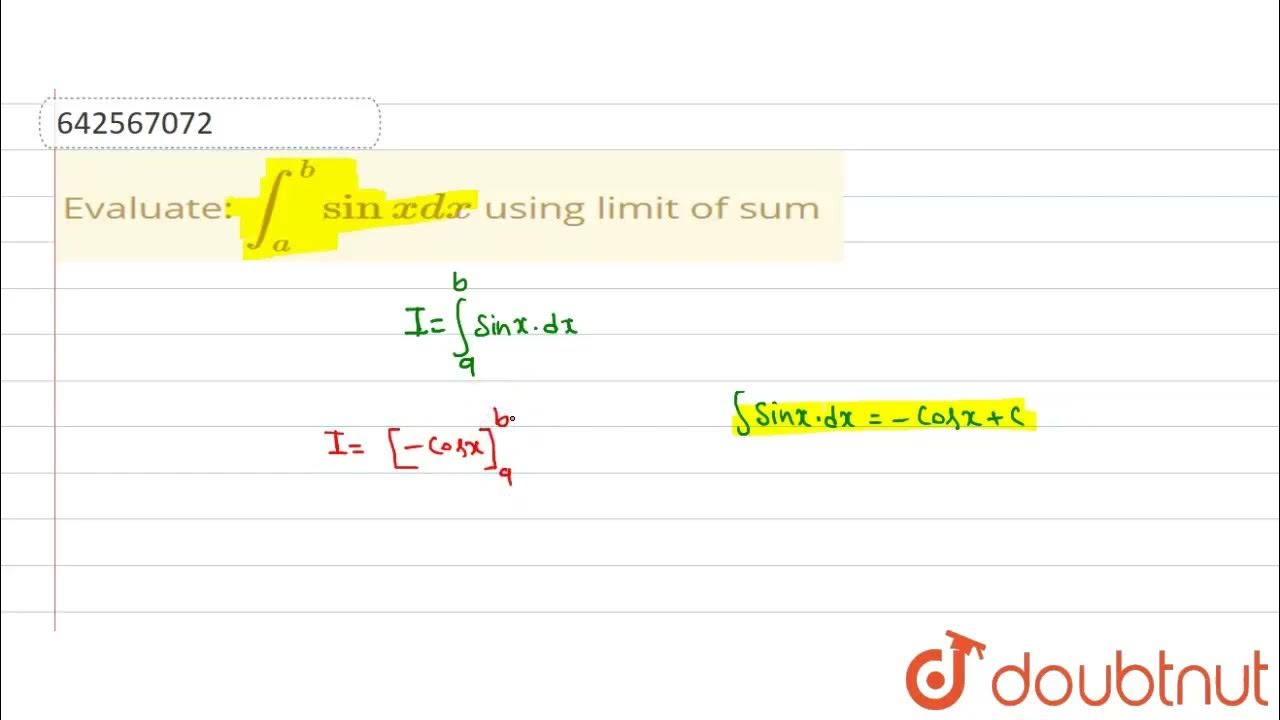 642567072
Evaluate: ∫_a^b sin x dx using limit of sum
I = ∫_a^b sinx.dx
∫ sinx.dx = - cosx + c
I = [- cosx]_a^b
doubtnut